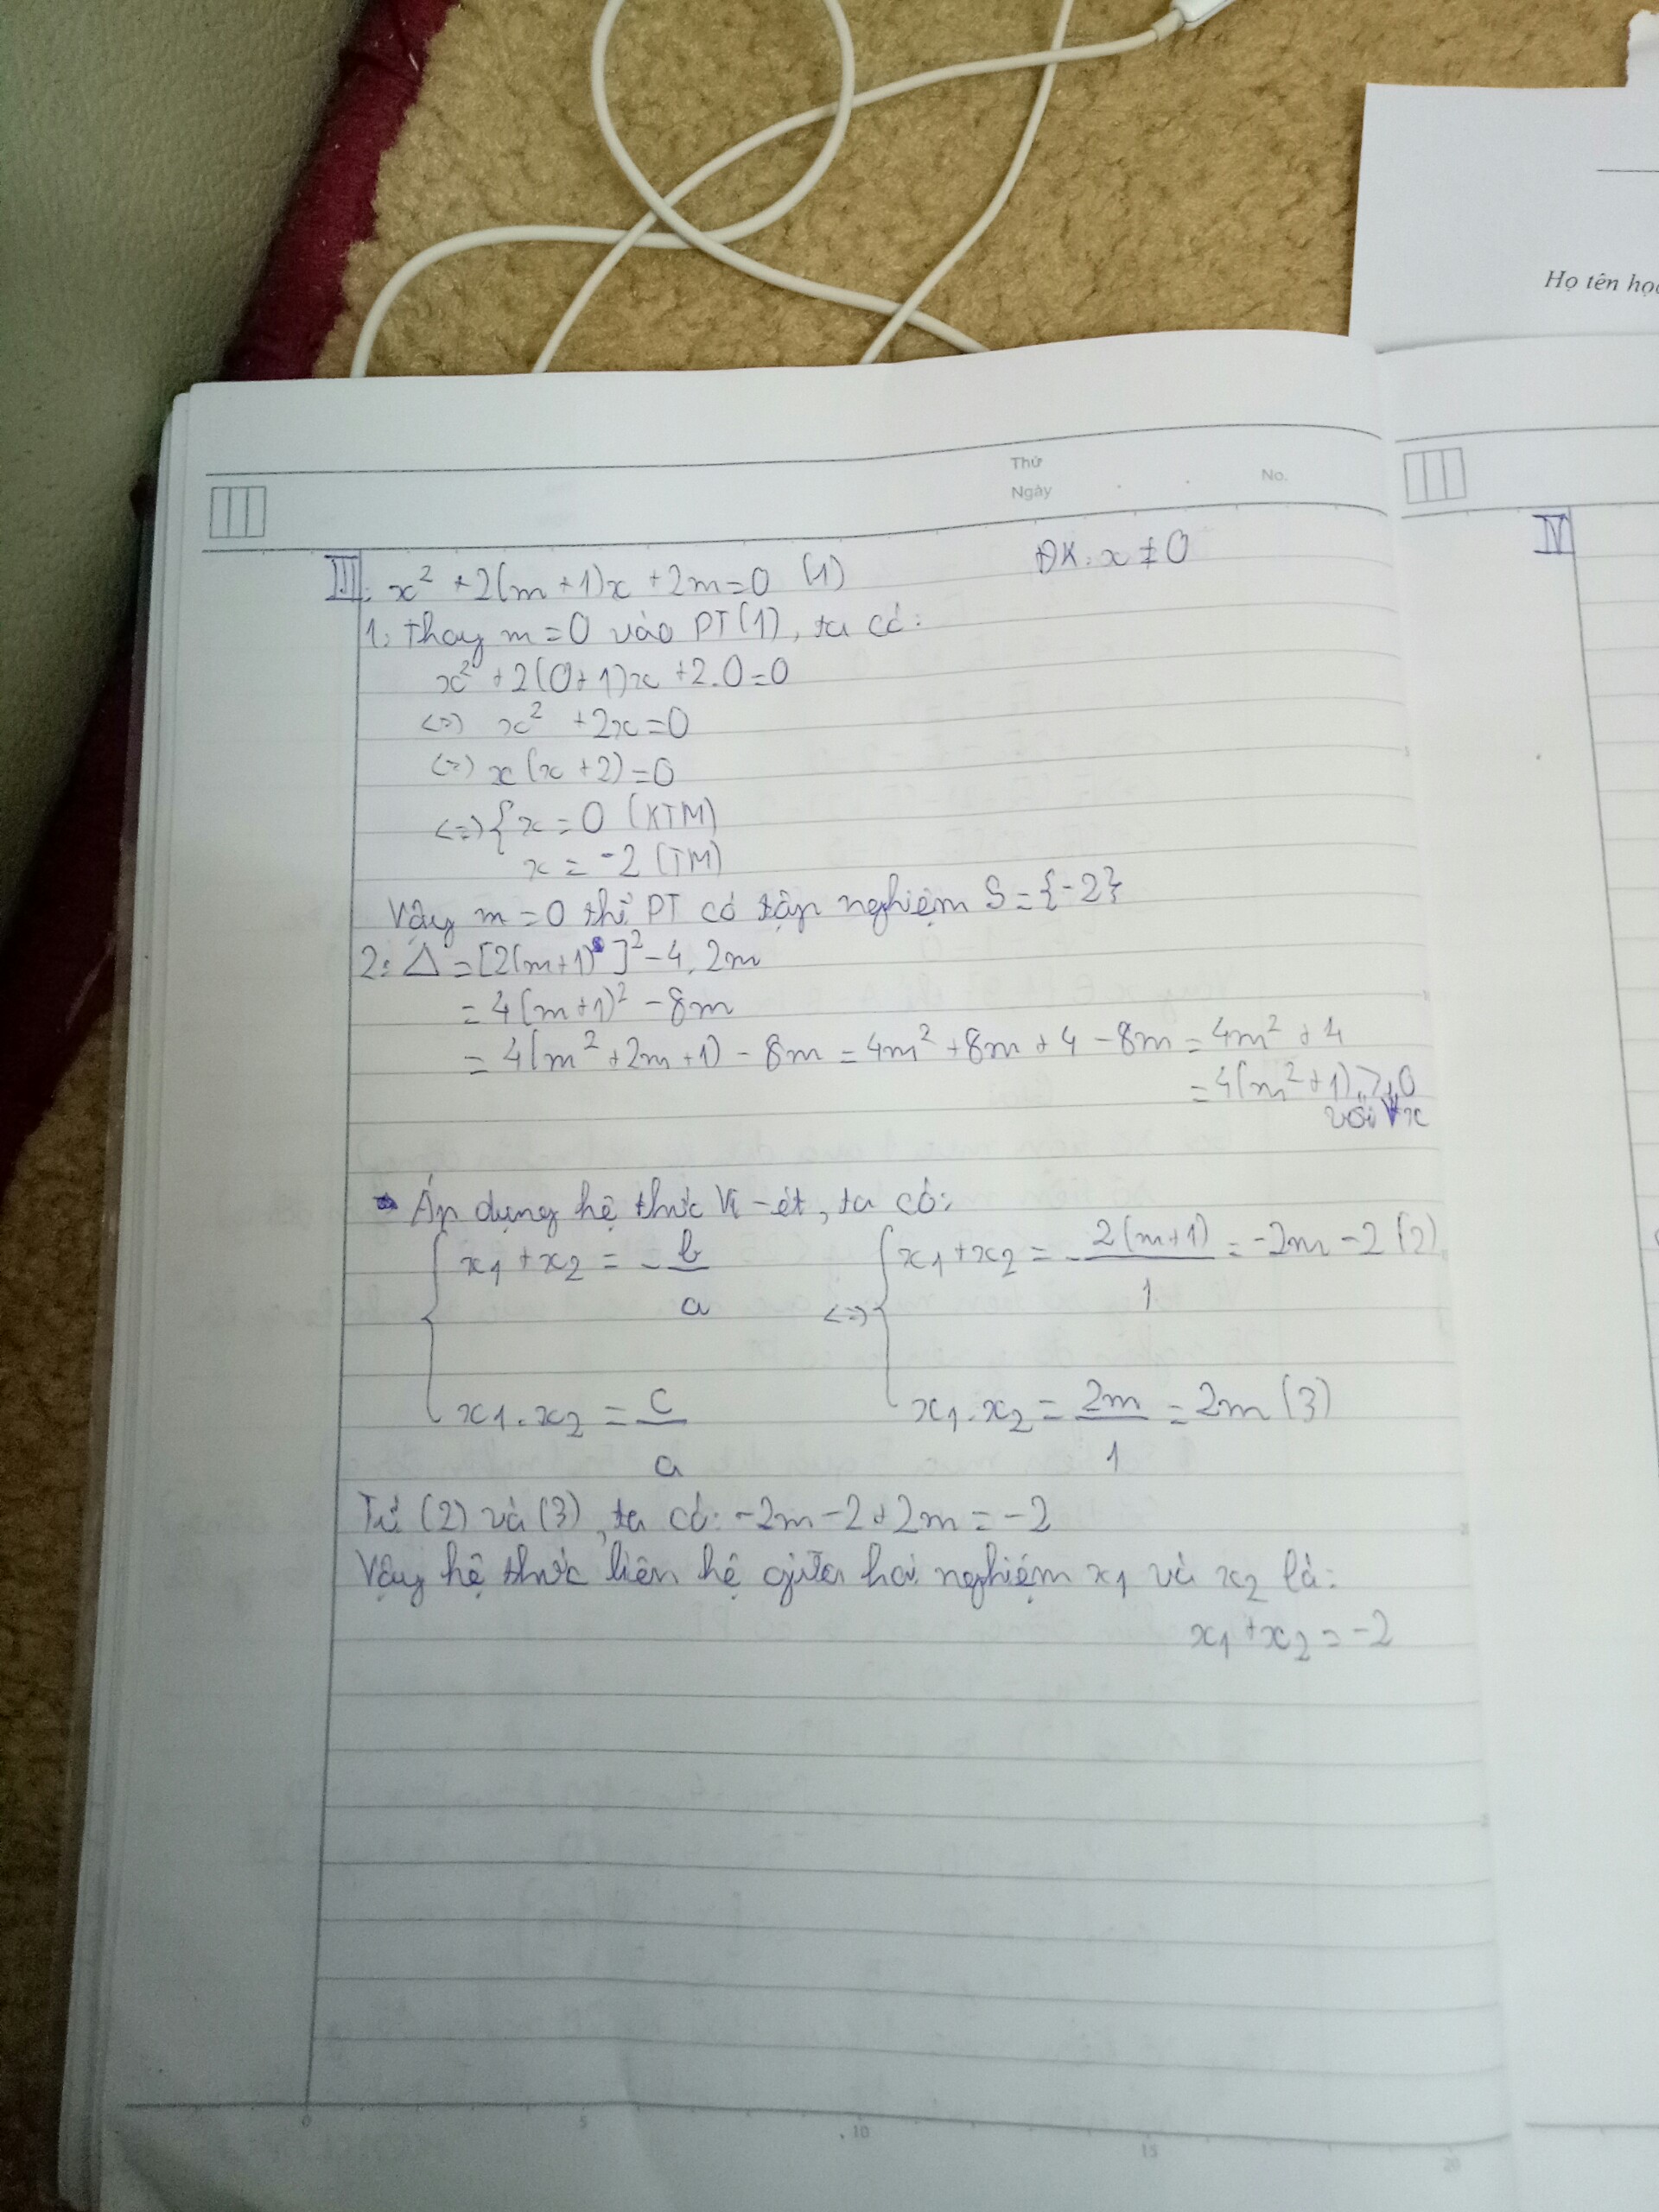 Họ tên học
Thứ
Ngày
No.
III. x² + 2(m+1)x + 2m = 0 (1) ĐK: x ≠ 0
1. Thay m = 0 vào PT(1), ta có:
x² + 2(0+1)x + 2.0 = 0
<=> x² + 2x = 0
<=> x(x+2) = 0
<=> { x = 0 (KTM)
x = -2 (TM)
Vậy m = 0 thì PT có tập nghiệm S = {-2}
2. Δ = [2(m+1)]² - 4.2m
= 4(m+1)² - 8m
= 4(m² + 2m + 1) - 8m = 4m² + 8m + 4 - 8m = 4m² + 4
= 4(m² + 1) ≥ 0
với ∀x
Áp dụng hệ thức Vi-ét, ta có:
{ x₁ + x₂ = -b/a <=> { x₁ + x₂ = -2(m+1)/1 = -2m - 2 (2)
x₁.x₂ = c/a x₁.x₂ = 2m/1 = 2m (3)
Từ (2) và (3), ta có: -2m - 2 + 2m = -2
Vậy hệ thức liên hệ giữa hai nghiệm x₁ và x₂ là:
x₁ + x₂ = -2
0 5 10 15 20
IV